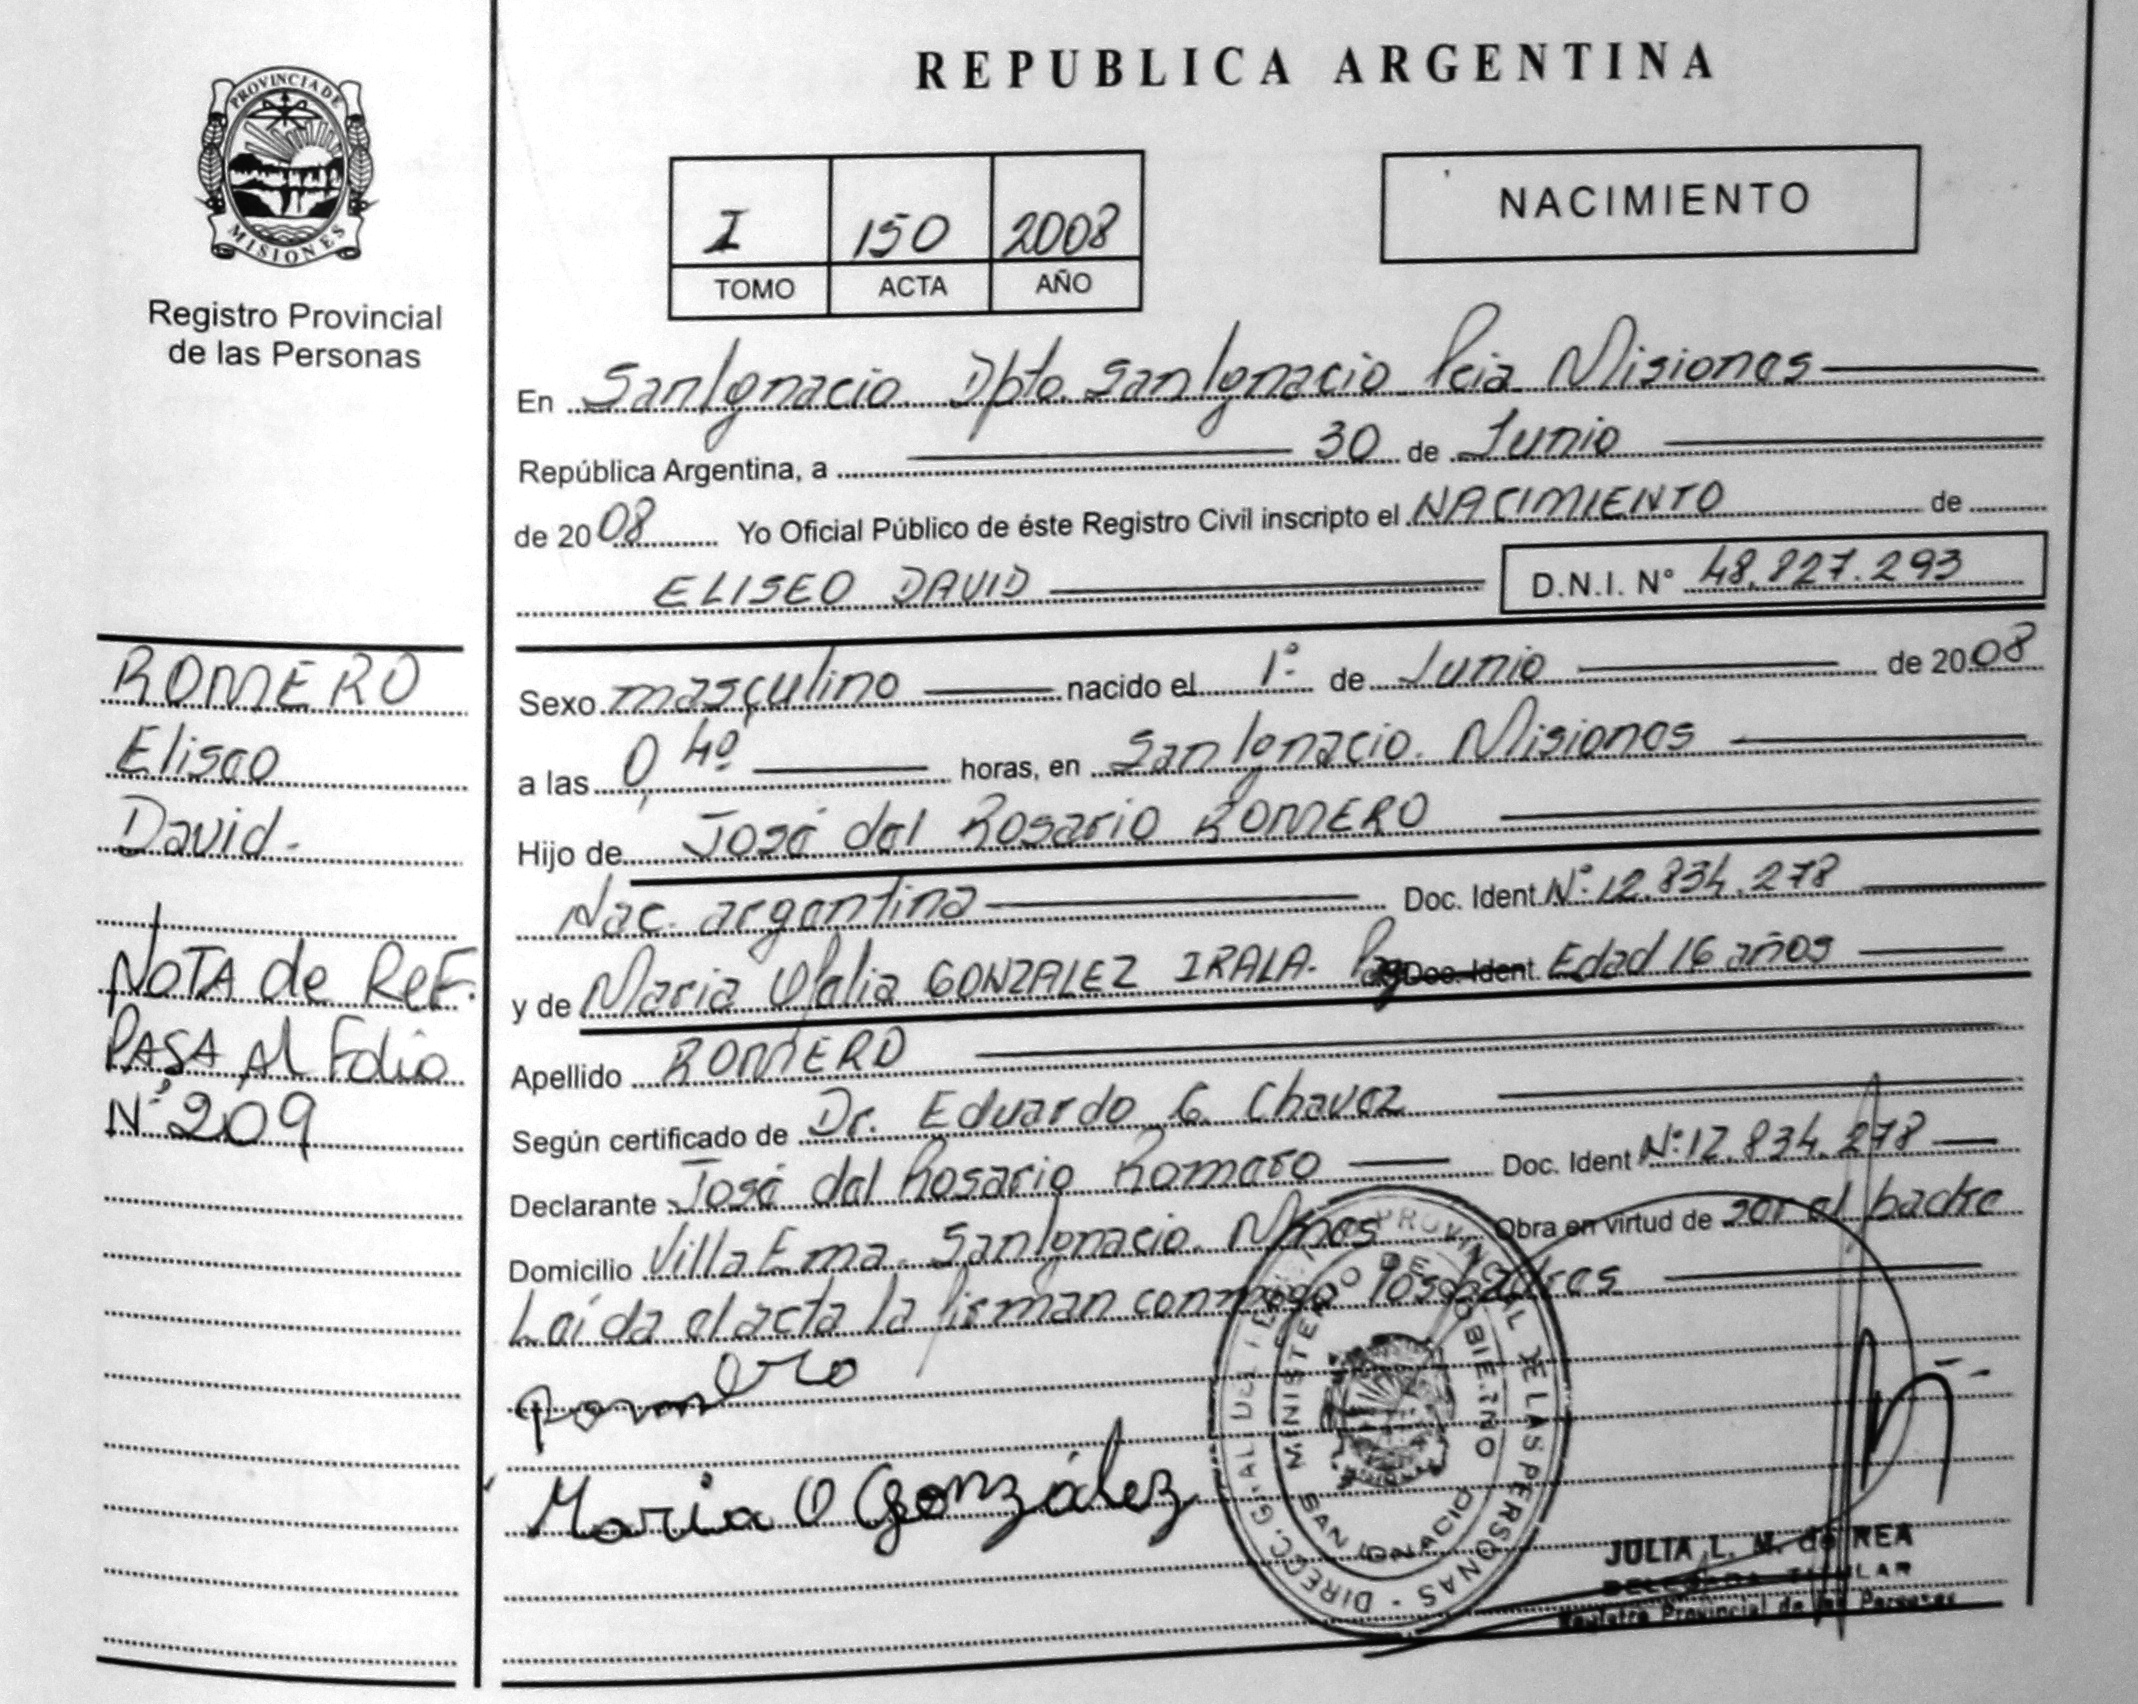 PROVINCIA DE
MISIONES
Registro Provincial
de las Personas
REPUBLICA ARGENTINA
I 150 2008
TOMO ACTA AÑO
NACIMIENTO
En San Ignacio Dpto. San Ignacio Pcia Misiones
República Argentina, a 30 de Junio
de 2008 Yo Oficial Público de éste Registro Civil inscripto el NACIMIENTO de
ELISEO DAVID D.N.I. N° 48.827.293
Sexo masculino nacido el 1° de Junio de 2008
a las 0,40 horas, en San Ignacio. Misiones
Hijo de José del Rosario ROMERO
Nac. argentina Doc. Ident N° 12.834.278
y de Maria Ofelia GONZALEZ IRALA. Doc. Ident Edad 16 años
Apellido ROMERO
Según certificado de Dr. Eduardo G. Chavez
Declarante José del Rosario Romero Doc. Ident N° 12.834.278
Domicilio Villa Ema. San Ignacio. Mnes Obra en virtud de ser el padre
Leída el acta la firman conmigo los padres
Romero
Maria O González
ROMERO
Eliseo
David-
NOTA de ReF.
PASA Al Folio
N° 209
PROVINCIAL DE LAS PERSONAS - DIRECC. GRAL
MINISTERIO DE GOBIERNO
SAN IGNACIO
JULIA L. M. de REA
DELEGADA TITULAR
Registro Provincial de las Personas